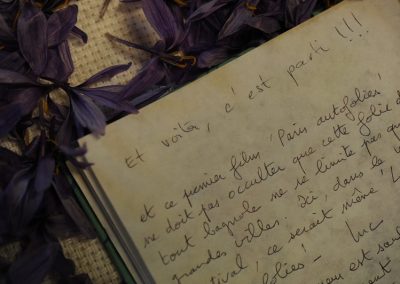 Et voilà, c'est parti !!!
et ce premier film, Paris autofolies !
ne doit pas occulter que cette folie d
tout bagnole ne se limite pas qu
grandes villes. Ici, dans le
tival, ce serait même
olies ! - Luc
est